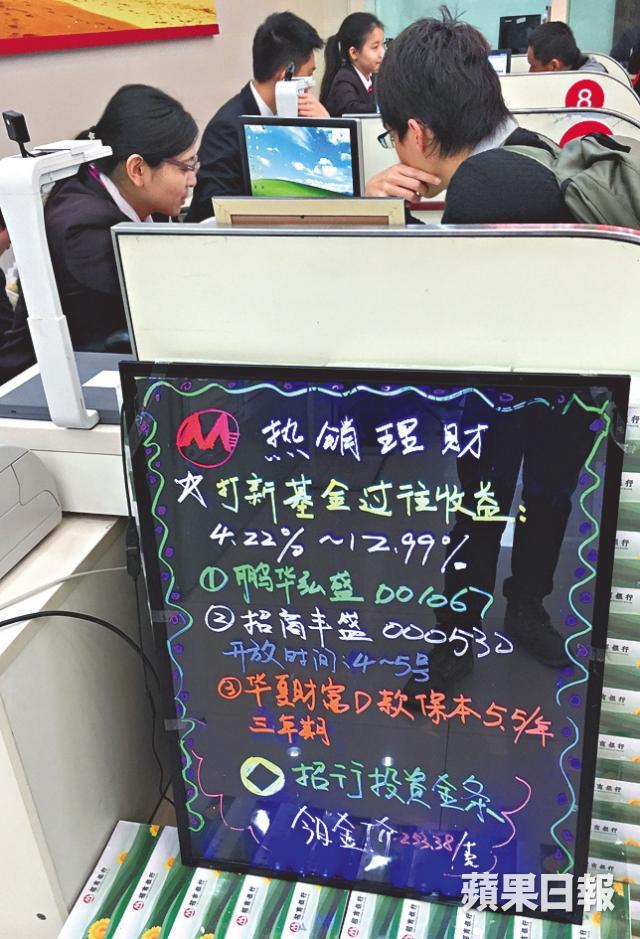 8
M 热销理财
☆打新基金过往收益:
4.22%~12.99%
①鹏华弘盛 001067
②招商丰盛 000530
开放时间:4~5号
③华夏财富D款保本5.5/年
三年期
招行投资金条
今日金价 253.38/克
招商银行
蘋果日報